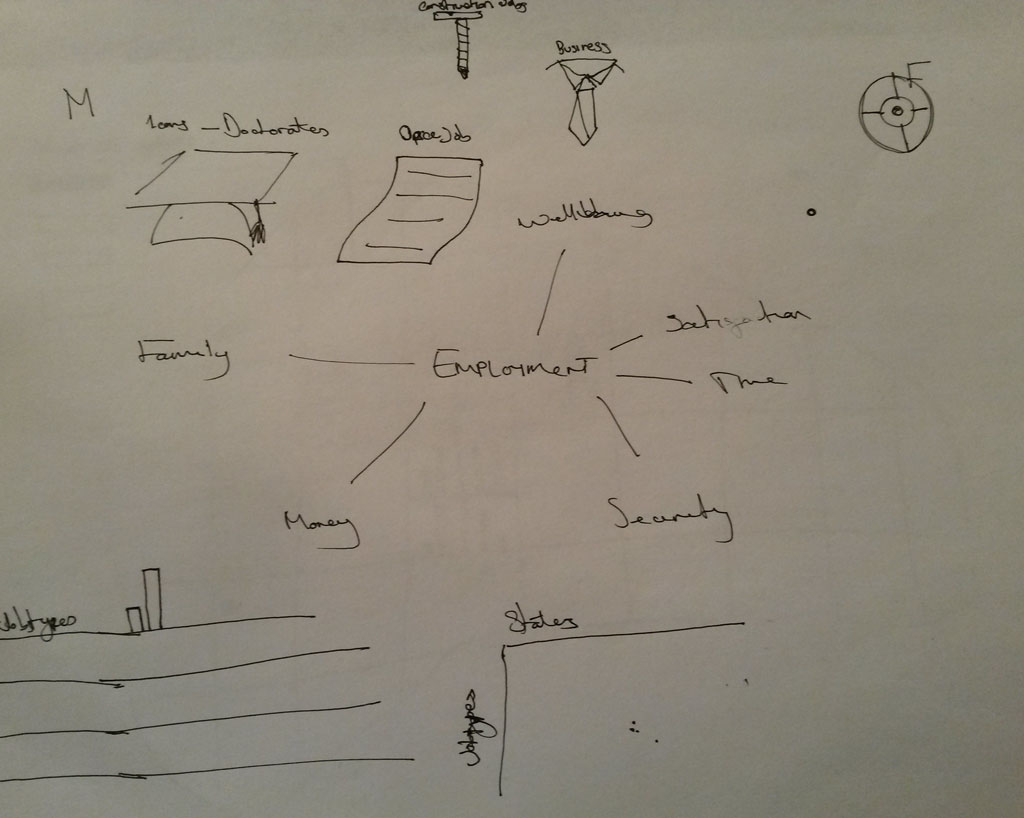 Construction Jobs
Business
F
M
Icons - Doctorates
Office Job
Wellbeing
Satisfaction
Family
EMPLOYMENT
Time
Money
Security
Jobtypes
States
Jobtypes